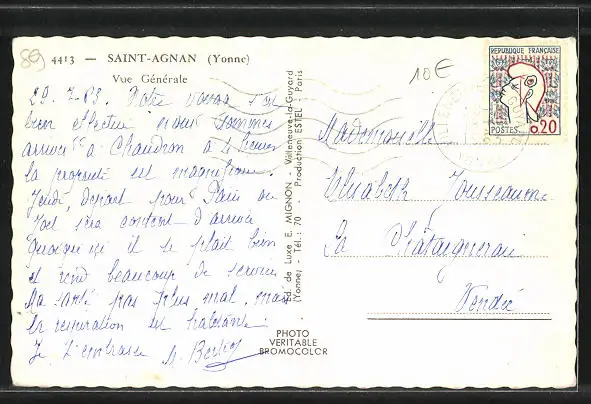 89
4413 — SAINT-AGNAN (Yonne)
Vue Générale
10€
REPUBLIQUE FRANÇAISE
POSTES 0,20
29.7.63. Notre voyage s'est
bien effectué nous sommes
arrivés à Chaudron à heures
la propriété est magnifique.
Jeudi, départ pour Paris où
Joel sera content d'arriver
Quoique ici il se plait bien
et rend beaucoup de services
Ma santé pas plus mal, mais
la respiration est haletante.
Je t'embrasse
Mademoiselle
Elisabeth Jousseaume
La Châtaigneraie
Vendée
Ed. de Luxe E. MIGNON - Villeneuve-la-Guyard
(Yonne) - Tél.: 70 - Production ESTEL - Paris
PHOTO
VERITABLE
BROMOCOLOR